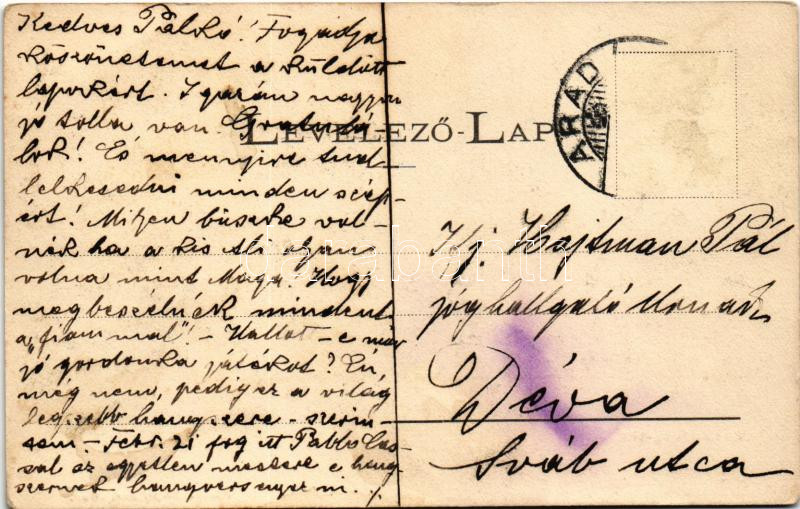 Kedves Pálkó! Fogadja
köszönetemet a küldött
lapokért. Igazán nagyon
jó tolla van. Gratulá-
lok! És mennyire tud
lelkesedni minden szép-
ért! Milyen büszke vol-
nék ha a kis öli olyan
volna mint Maga! Hogy
megbeszélnénk mindent
a „fiammal”! - Hallot-e már
jó gordonka játékot? Én,
még nem, pedig ez a világ
legszebb hangszere - szerin-
tem. - Febr. 21 fog itt Pablo Ca-
sal az egyetlen mestere e hang-
szernek hangversenyezni.
LEVELEZŐ-LAP
ARAD
Ifj. Hajtman Pál
joghallgató Úrnak
Déva
Sváb utca
darabanth